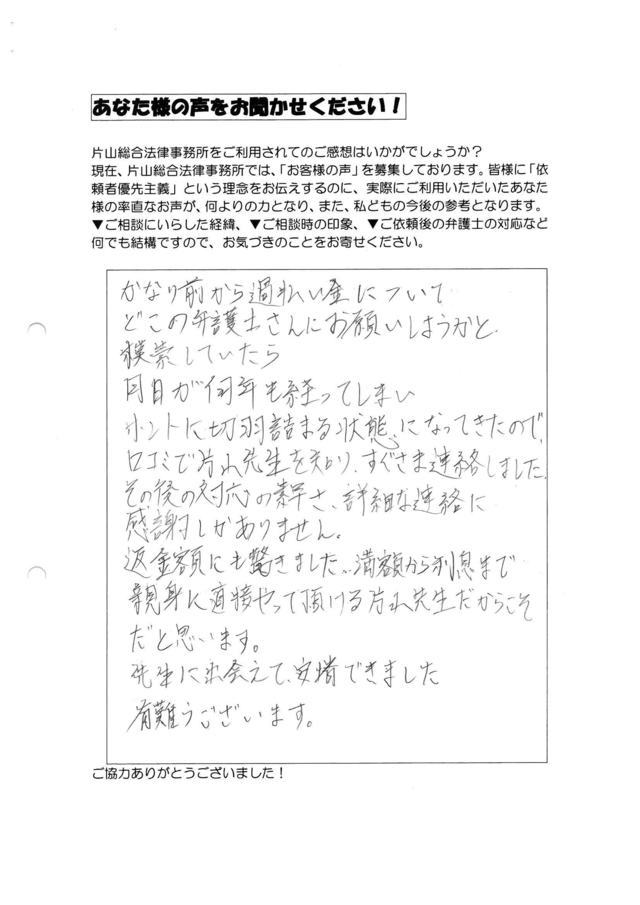 あなた様の声をお聞かせください！
片山総合法律事務所をご利用されてのご感想はいかがでしょうか？
現在、片山総合法律事務所では、「お客様の声」を募集しております。皆様に「依
頼者優先主義」という理念をお伝えするのに、実際にご利用いただいたあなた
様の率直なお声が、何よりの力となり、また、私どもの今後の参考となります。
▼ご相談にいらした経緯、▼ご相談時の印象、▼ご依頼後の弁護士の対応など
何でも結構ですので、お気づきのことをお寄せください。
かなり前から過払い金について
どこの弁護士さんにお願いしようかと
模索していたら
月日が何年も経ってしまい
ホントに切羽詰まる状態になってきたので、
口コミで片山先生を知り、すぐさま連絡しました。
その後の対応の素早さ、詳細な連絡に
感謝しかありません。
返金額にも驚きました…満額から利息まで
親身に直接やって頂ける片山先生だからこそ
だと思います。
先生に出会えて、安堵できました
有難うございます。
ご協力ありがとうございました！